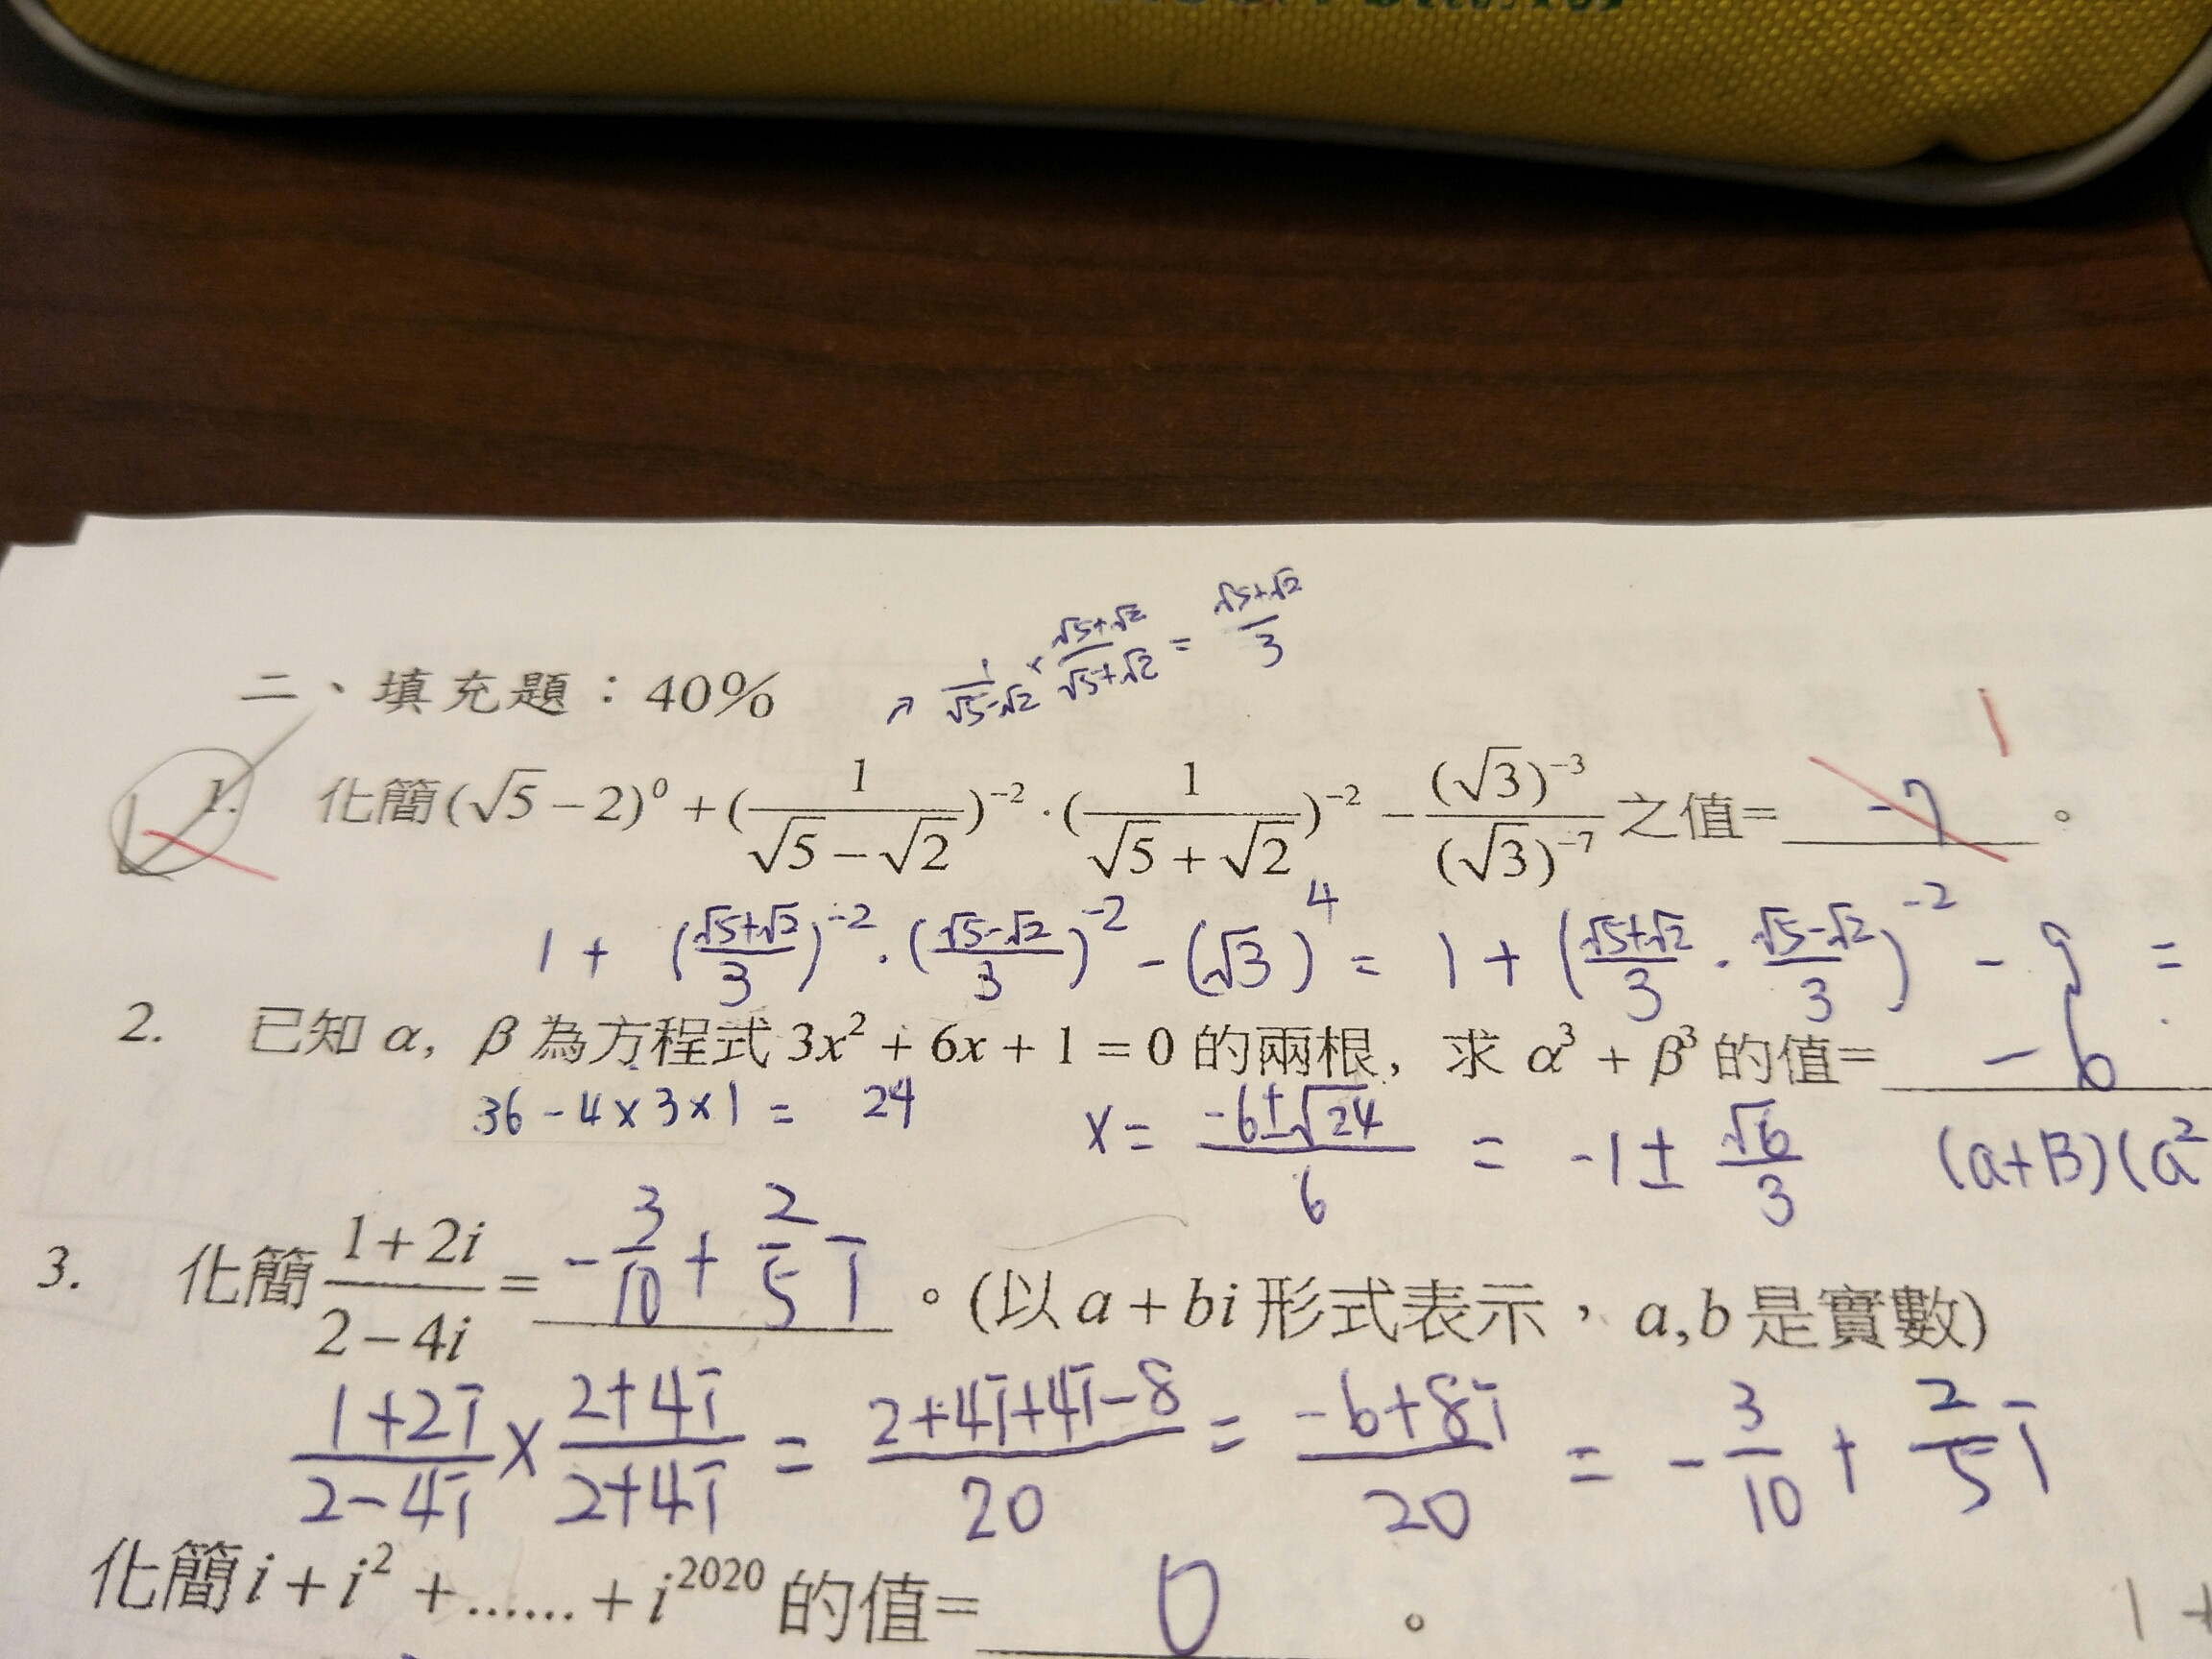 ↗ \frac{1}{√5-√2} × \frac{√5+√2}{√5+√2} = \frac{√5+√2}{3}
二、填充題：40%
1
1. 化簡(√5-2)^0+(\frac{1}{√5-√2})^{-2}·(\frac{1}{√5+√2})^{-2}-\frac{(√3)^{-3}}{(√3)^{-7}}之值= -7 。
1 + (\frac{√5+√2}{3})^{-2}·(\frac{√5-√2}{3})^{-2} - (√3)^4 = 1 + (\frac{√5+√2}{3}·\frac{√5-√2}{3})^{-2} - 9 =
2. 已知 α, β 為方程式 3x^2+6x+1=0 的兩根, 求 α^3+β^3 的值= -6
36-4×3×1= 24 x= \frac{-6±√24}{6} = -1± \frac{√6}{3} (a+B)(a^2
3. 化簡\frac{1+2i}{2-4i}= -\frac{3}{10}+\frac{2}{5}i 。(以 a+bi 形式表示，a,b 是實數)
\frac{1+2i}{2-4i}×\frac{2+4i}{2+4i} = \frac{2+4i+4i-8}{20} = \frac{-6+8i}{20} = -\frac{3}{10}+\frac{2}{5}i
化簡 i+i^2+......+i^{2020} 的值= 0 。
1+